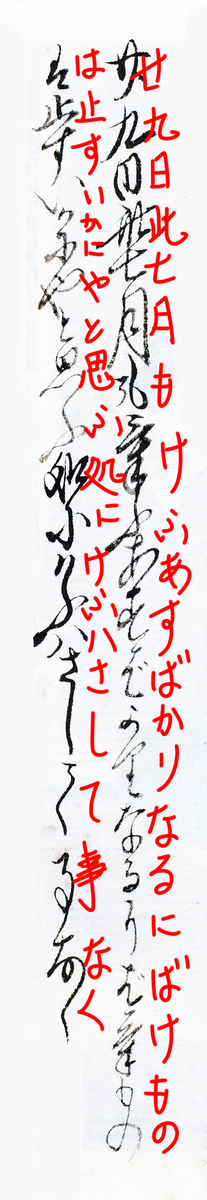 廿九日此七月もけふあすばかりなるにばけもの
は止すいかにやと思ふ処にけふハさして事なく